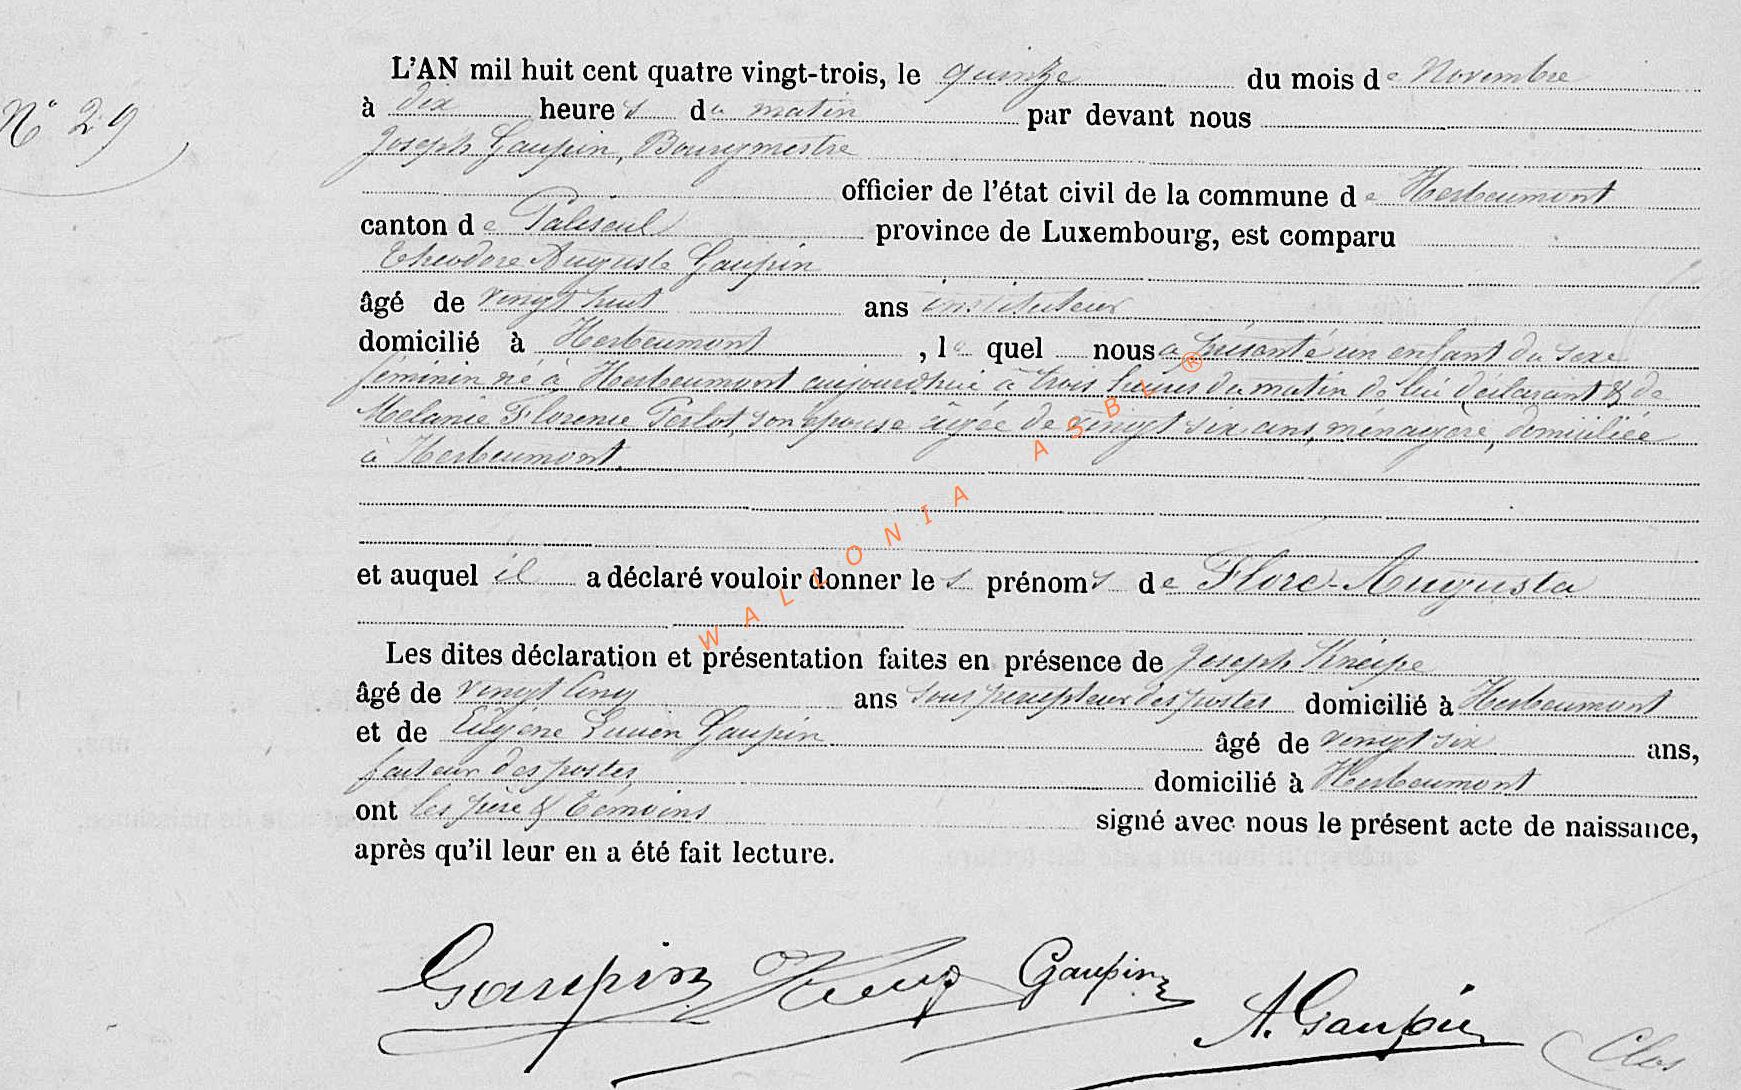 N° 29
L'AN mil huit cent quatre vingt-trois, le quinze du mois de Novembre
à dix heures du matin par devant nous
Joseph Gaupin, Bourgmestre
officier de l'état civil de la commune de Herbeumont
canton de Paliseul province de Luxembourg, est comparu
Théodore Auguste Gaupin
âgé de vingt huit ans instituteur
domicilié à Herbeumont, le quel nous a présenté un enfant du sexe
féminin né à Herbeumont aujourd'hui à trois heures du matin de lui déclarant & de
Mélanie Florence Perlot, son épouse âgée de vingt six ans, ménagère, domiciliée
à Herbeumont.
et auquel il a déclaré vouloir donner les prénoms de Flore-Augusta
Les dites déclaration et présentation faites en présence de Joseph Kneipe
âgé de vingt cinq ans sous percepteur des postes domicilié à Herbeumont
et de Eugène Lucien Gaupin âgé de vingt six ans,
facteur des postes domicilié à Herbeumont
ont les père & témoins signé avec nous le présent acte de naissance,
après qu'il leur en a été fait lecture.
Gaupin Gaupin
A. Gaupin
WALLONIA ASBL ®